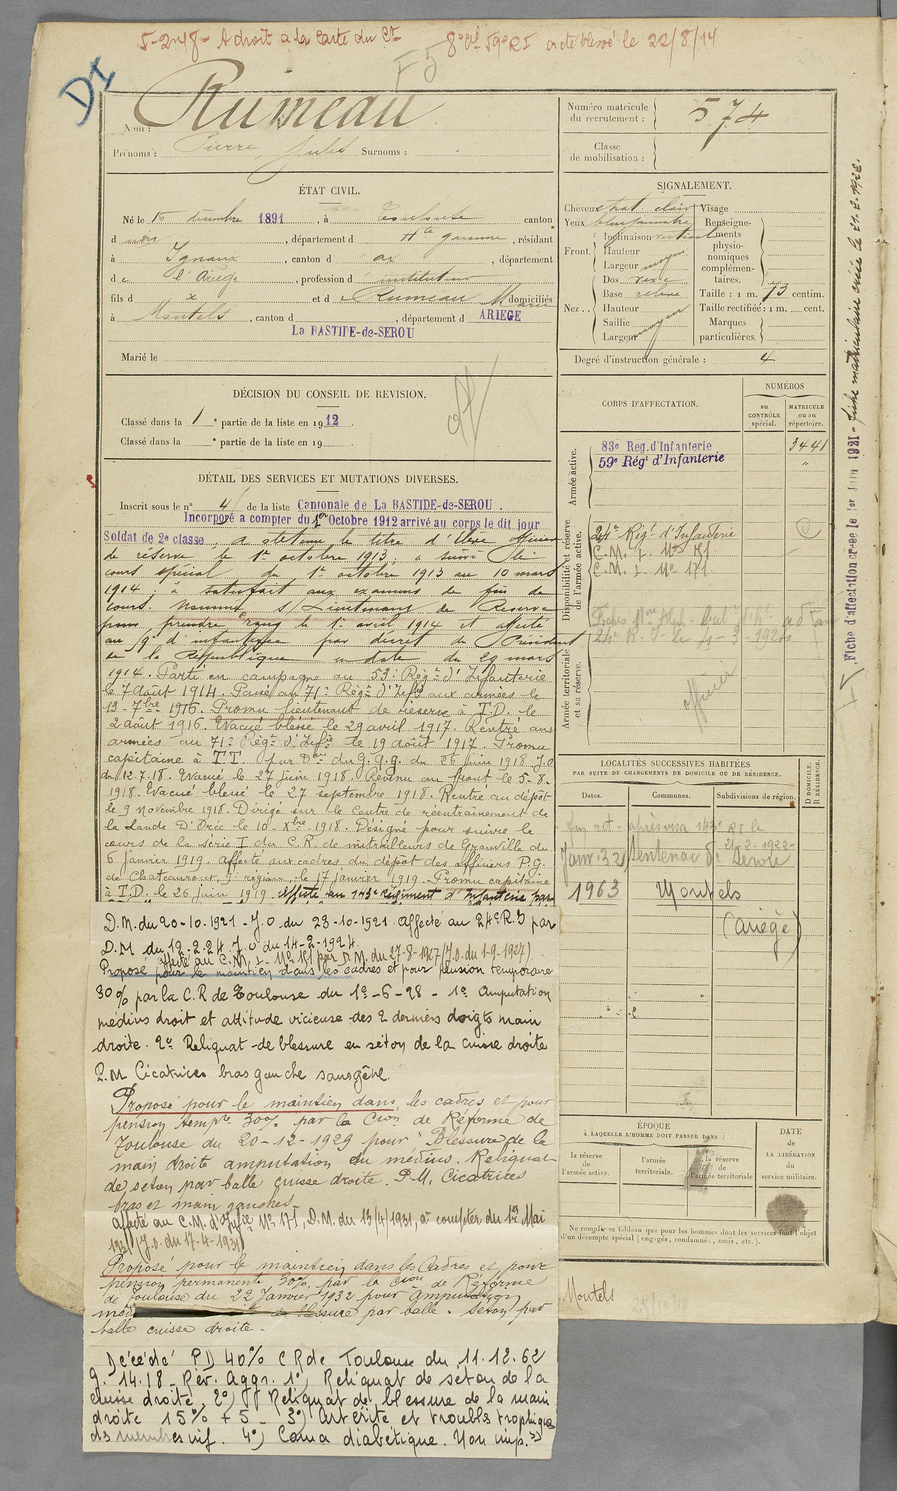 5-2-18 - A droit a la Carte du Ct
8e Cie 59e RI acte blessé le 22/8/14
F5
DI
Nom : Rumeau
Prénoms : Pierre, Jules Surnoms :
Numéro matricule
du recrutement :
574
Classe
de mobilisation :
ÉTAT CIVIL.
Né le 16 décembre 1891, à Toulouse canton
d dudit, département d Hte Garonne, résidant
à Ignaux, canton d ax, département
de l'Ariège, profession d instituteur
fils d x et de Rumeau Marie domiciliés
à Montels, canton d , département d ARIÈGE
La BASTIDE-de-SEROU
Marié le
SIGNALEMENT.
Cheveux chat. clair
Yeux
Front.
Inclinaison vertical
Hauteur
Largeur moyen
Nez..
Dos
Base
Hauteur
Saillie
Largeur moyen
Visage
Renseigne-
ments
physio-
nomiques
complémen-
taires.
Taille : 1 m. 73 centim.
Taille rectifiée : 1 m. cent.
Marques
particulières.
Degré d'instruction générale : 4
DÉCISION DU CONSEIL DE REVISION.
Classé dans la 1 e partie de la liste en 1912.
Classé dans la e partie de la liste en 19 .
off
DÉTAIL DES SERVICES ET MUTATIONS DIVERSES.
Inscrit sous le n° 4 de la liste Cantonale de La BASTIDE-de-SEROU.
Incorporé a compter du 1er Octobre 1912 arrivé au corps le dit jour
Soldat de 2e classe, a obtenu le titre d'Elève officier
de réserve le 1er octobre 1913, a suivi le
cours spécial du 1er octobre 1913 au 10 mars
1914 ; a satisfait aux examens de fin de
cours. Nommé s/Lieutenant de Réserve
pour prendre rang le 1er avril 1914 et affecté
au 9e d'infanterie par décret du Président
de la République en date du 29 mars
1914. Parti en campagne au 53e Régt d'Infanterie
le 7 Août 1914. Passé au 71e Régt d'Infie aux armées le
13-7bre 1916. Promu lieutenant de réserve à T.D. le
2 août 1916. Evacué blessé le 29 avril 1917. Rentré aux
armées au 71e Régt d'Infie le 19 août 1917. Promu
capitaine à T.T. par Don du G.Q.G. du 26 juin 1918 J.O
du 12.7.18. Evacué le 27 juin 1918. Revenu au front le 5-8-
1918. Evacué blessé le 27 septembre 1918. Rentré au dépôt
le 9 novembre 1918. Dirigé sur le Centre de réentraînement de
la Lande D'Orée le 10-Xbre-1918. Désigné pour suivre le
cours de la série I du C.R. de mitrailleurs de Granville du
6 janvier 1919. Affecté aux cadres du dépôt des officiers P.G.
de Chateauroux, 9e région, le 17 janvier 1919. Promu capitaine
à T.D. le 26 juin 1919. Affecté au 143e Régiment d'Infanterie par
D.M. du 20-10-1921 - J.O du 23-10-1921 Affecté au 24e R.I par
D.M du 12.2.24 J.O du 14-2-1924.
Affecté au C.M. I. No 171 par D.M. du 27-8-1927 (J.O. du 1-9-1927)
Proposé pour le maintien dans les cadres et pour pension temporaire
30% par la C.R de Toulouse du 19-6-28 - 1° Amputation
médius droit et attitude vicieuse des 2 derniers doigts main
droite. 2° Reliquat de blessure en séton de la cuisse droite
P.M Cicatrices bras gauche sans gêne.
Proposé pour le maintien dans les cadres et pour
pension tempre 30% par la Cion de Réforme de
Toulouse du 20-12-1929 pour "Blessure de la
main droite amputation du médius. Reliquat
de séton par balle cuisse droite. P.M. Cicatrices
bras et main gauches.
Affecté au C.M. d'Infie No 171, D.M. du 13/4/1931, à compter du 1er Mai
1931 (J.O. du 17-4-1931)
Proposé pour le maintien dans les Cadres et pour
pension permanente 30% par la Cion de Réforme
de Toulouse du 22 Janvier 1932 pour amputation
blessure par balle. Séton par
balle cuisse droite.
Décédé PD 40% CR de Toulouse du 11.12.62
g. 14.18 - Rév. Aggr. 1°) Reliquat de séton de la
cuisse droite. 2°) Reliquat de blessure de la main
droite 15% + 5 - 3°) Artérite et troubles trophiques
des membres inf. 4°) Coma diabétique. Non imp.
CORPS D'AFFECTATION.
NUMÉROS
au
CONTRÔLE
spécial.
MATRICULE
ou au
répertoire.
Armée active.
83e Reg. d'Infanterie 3441
59e Régt d'Infanterie "
Disponibilité et réserve
de l'armée active.
24e Régt d'Infanterie
C.M. I. No 171
C.M. I. No 171
Armée territoriale
et sa réserve.
officier
LOCALITÉS SUCCESSIVES HABITÉES
PAR SUITE DE CHANGEMENTS DE DOMICILE OU DE RÉSIDENCE.
Dates.
Communes.
Subdivisions de région.
D DOMICILE.
R RÉSIDENCE.
Janv 32 Sentenac de Sérou
1963 Montels
(Ariège)
ÉPOQUE
À LAQUELLE L'HOMME DOIT PASSER DANS :
la réserve
de
l'armée active.
l'armée
territoriale.
la réserve
de
l'armée territoriale
DATE
de
LA LIBÉRATION
du
service militaire.
Ne remplir ce tableau que pour les hommes dont les services font l'objet
d'un décompte spécial (engagés, condamnés, omis, etc.).
Montels
Fiche d'affectation créée le 1er Juin 1921 - fiche matriculaire créée le 21.2.1922.